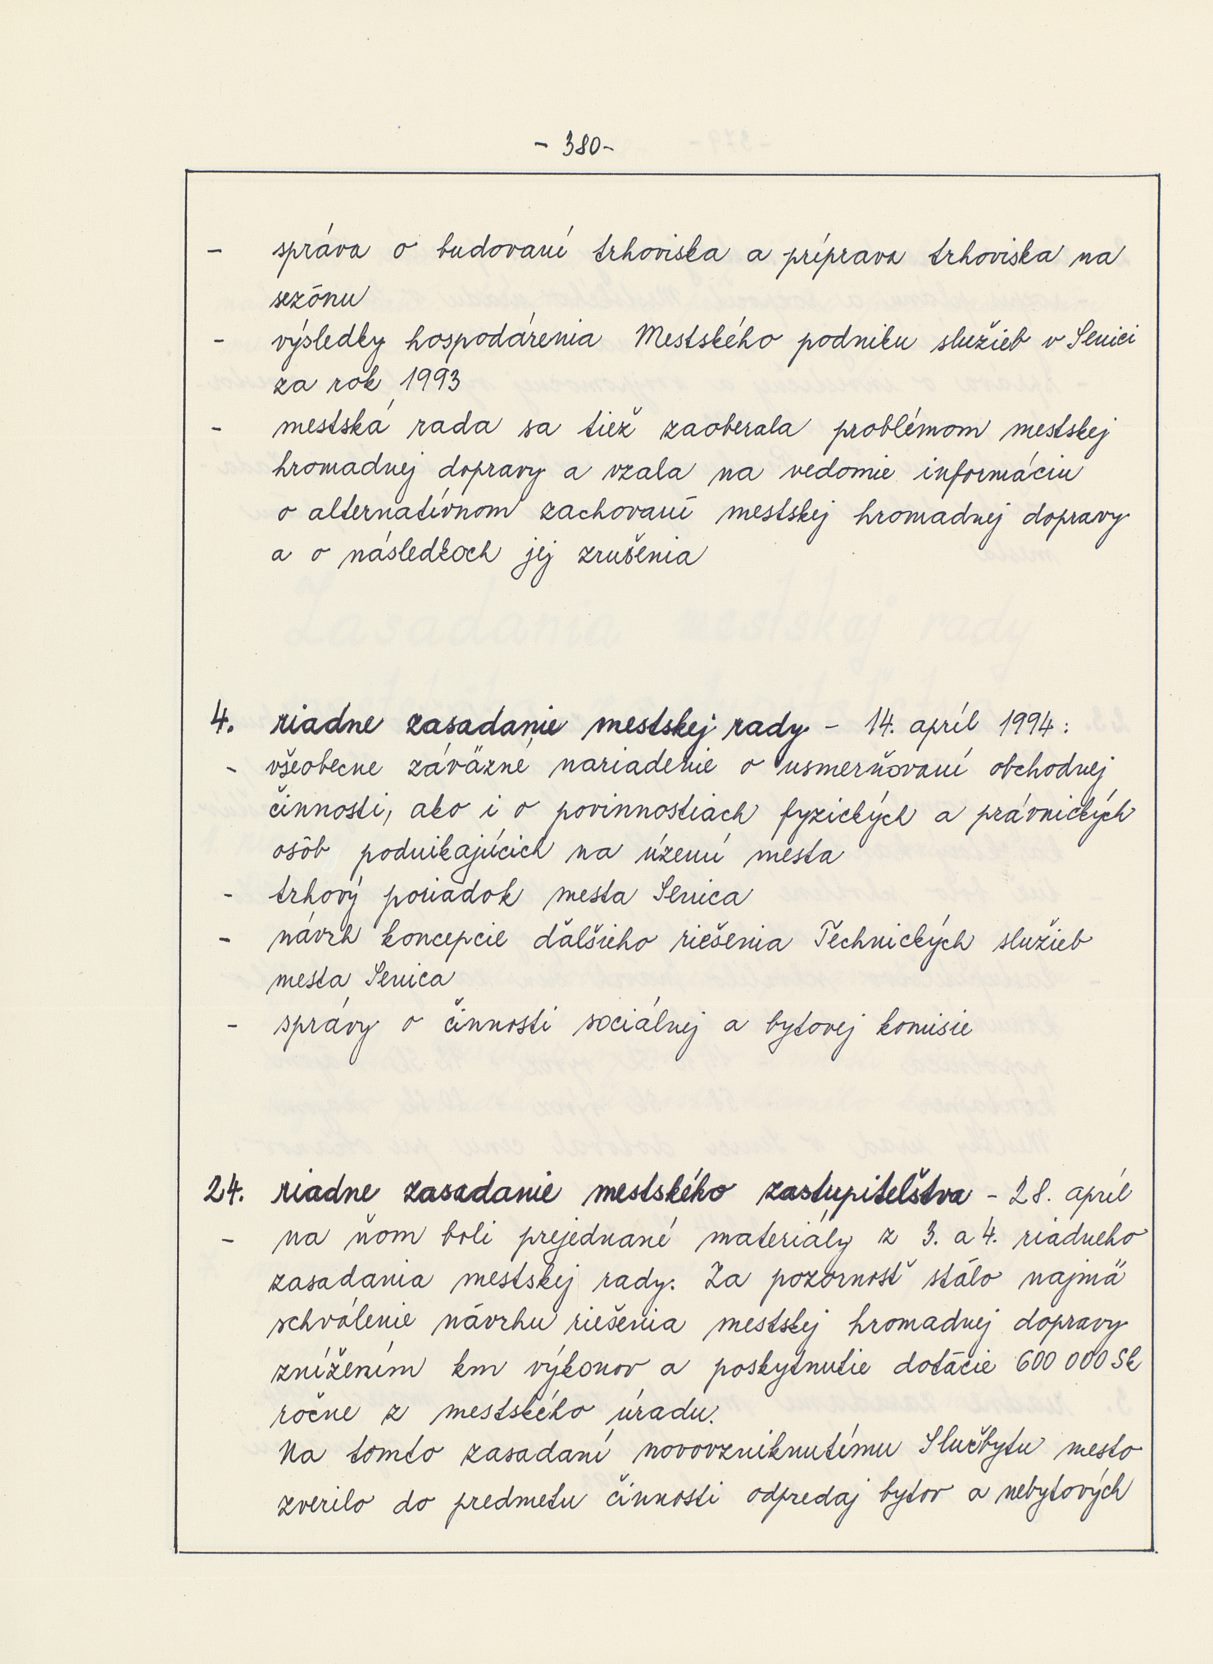 - 380-
- správa o budovaní trhoviska a príprava trhoviska na
sezónu
- výsledky hospodárenia Mestského podniku služieb v Senici
za rok 1993
- mestská rada sa tiež zaoberala problémom mestskej
hromadnej dopravy a vzala na vedomie informáciu
o alternatívnom zachovaní mestskej hromadnej dopravy
a o následkoch jej zrušenia
4. riadne zasadanie mestskej rady - 14. apríl 1994:
- všeobecne záväzné nariadenie o usmerňovaní obchodnej
činnosti, ako i o povinnostiach fyzických a právnických
osôb podnikajúcich na území mesta
- trhový poriadok mesta Senica
- návrh koncepcie ďalšieho riešenia Technických služieb
mesta Senica
- správy o činnosti sociálnej a bytovej komisie
24. riadne zasadanie mestského zastupiteľstva - 28. apríl
- na ňom boli prejednané materiály z 3. a 4. riadneho
zasadania mestskej rady. Za pozornosť stálo najmä
schválenie návrhu riešenia mestskej hromadnej dopravy
znížením km výkonov a poskytnutie dotácie 600 000 Sk
ročne z mestského úradu.
Na tomto zasadaní novovzniknutému Službytu mesto
zverilo do predmetu činnosti odpredaj bytov a nebytových